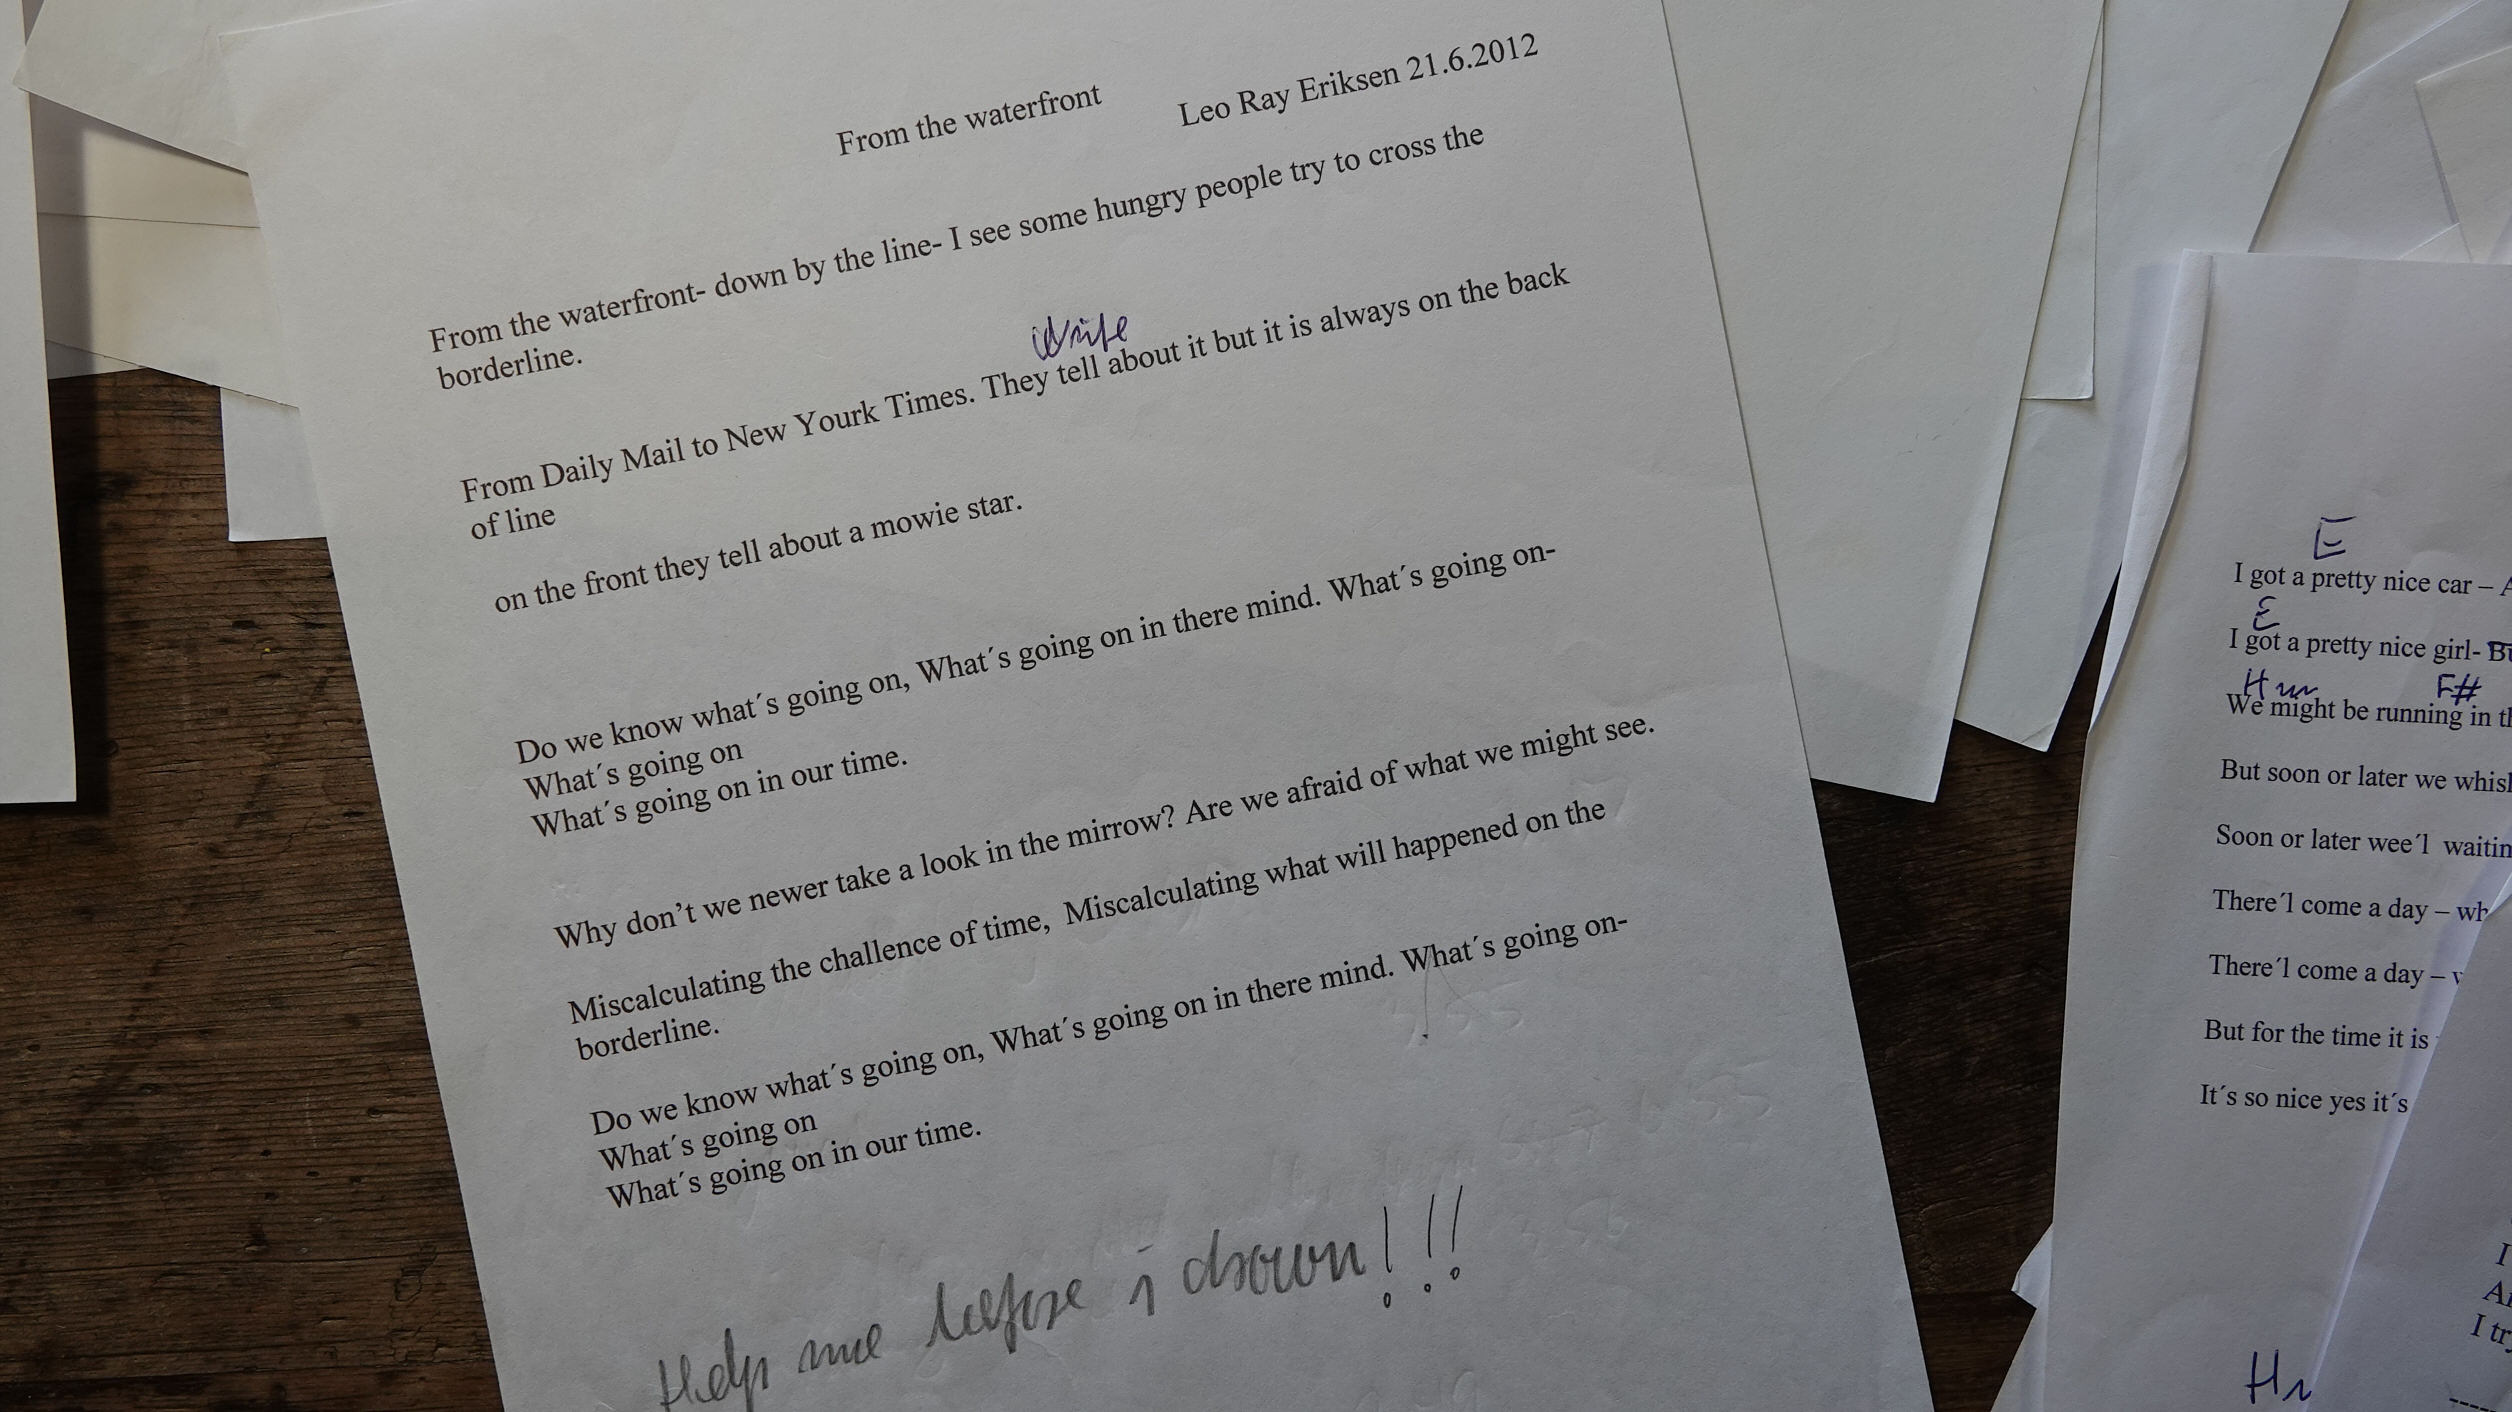 From the waterfront Leo Ray Eriksen 21.6.2012
From the waterfront- down by the line- I see some hungry people try to cross the
borderline.
Write
From Daily Mail to New Yourk Times. They tell about it but it is always on the back
of line
on the front they tell about a mowie star.
Do we know what´s going on, What´s going on in there mind. What´s going on-
What´s going on
What´s going on in our time.
Why don’t we newer take a look in the mirrow? Are we afraid of what we might see.
Miscalculating the challence of time, Miscalculating what will happened on the
borderline.
Do we know what´s going on, What´s going on in there mind. What´s going on-
What´s going on
What´s going on in our time.
Help me before i drown!!!
E
I got a pretty nice car –
E
I got a pretty nice girl-
Hm F#
We might be running in
But soon or later we
Soon or later wee´l
There´l come a day –
There´l come a day –
But for the time it is
It´s so nice yes it´s
I
I